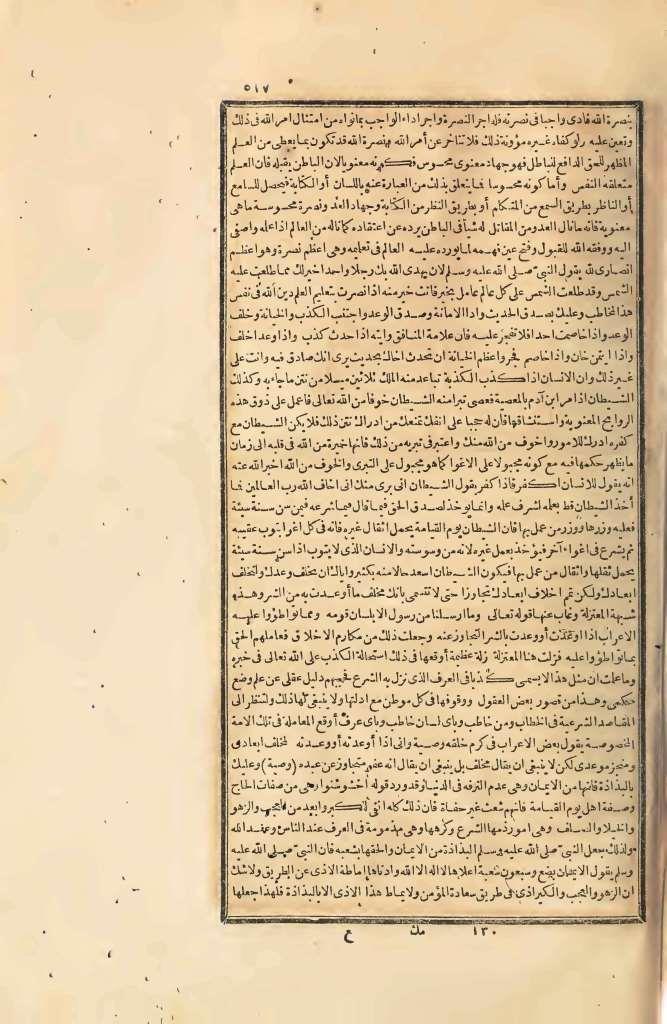 ٥١٧
بنصرة الله فادى واجبا فى نصرته فله اجر النصرة واجر اداء الواجب بما نواه من امتثال امر الله فى ذلك
وتعين عليه ولو كفاه غيره مؤونة ذلك فلا تتأخر عن أمر الله ونصرة الله قد تكون بما يعطى من العلم
المظهر للحق الدافع للباطل فهو جهاد معنوى محسوس فكونه معنويا لان الباطن يقبله فان العلم
متعلقه النفس وأما كونه محسوسا فما يتعلق بذلك من العبارة عنه باللسان أو الكتابة فيحصل للسامع
أو الناظر بطريق السمع من المتكلم أو بطريق النظر من الكتابة وجهاد العدو نصرة محسوسة ما هى
معنوية فانه ما نال العدو من المقاتل له شيأ فى الباطن يرده عن اعتقاده كما ناله من العالم اذا علمه واصغى
اليه ووفقه الله للقبول وفتح عين فهمه لما يورده عليه العالم فى تعليمه وهى اعظم نصرة وهو اعظم
انصارى لله يقول النبى صلى الله عليه وسلم لان يهدى الله بك رجلا واحدا خير لك مما طلعت عليه
الشمس وقد طلعت الشمس على كل عالم عامل بخير فانت خير منه اذا نصرت بتعليم العلم دين الله فى نفس
هذا المخاطب وعليك بصدق الحديث واداء الامانة وصدق الوعد واجتنب الكذب والخيانة وخلف
الوعد واذا خاصمت احدا فلا تفجر عليه فان علامة المنافق وآيته اذا حدث كذب واذا وعد اخلف
واذا ائتمن خان واذا خاصم فجر واعظم الخيانة ان تحدث اخاك بحديث يرى انك صادق فيه وانت على
غير ذلك وان الانسان اذا كذب الكذبة تباعد منه الملك ثلاثين ميلا من نتن ما جاء به وكذلك
الشيطان اذا امر ابن آدم بالمعصية فعصى تبرا منه الشيطان خوفا من الله تعالى فاعمل على ذوق هذه
الروايح المعنوية واستنشاقها فان له حجبا على انفك تمنعك من ادراك نتن ذلك فلا يكن الشيطان مع
كفره ادرك للامور واخوف من الله منك واعتبر فى تبريه من ذلك فانها خيرة من الله فى قلبه الى زمان
ما يظهر حكمها فيه مع كونه مجبولا على الاغواء كما هو مجبول على التبرى والخوف من الله اخبر الله عنه
انه يقول للانسان اكفر فاذا كفر يقول الشيطان انى برىء منك انى اخاف الله رب العالمين فما
أخذ الشيطان قط بعمله لشرف علمه وانما يؤخذ لصدق الحق فيما قال فيما شرعه فيمن سن سنة سيئة
فعليه وزرها ووزر من عمل بها فان الشيطان يوم القيامة يحمل اثقال غيره فانه فى كل اغواء يتوب عقيبه
ثم يشرع فى اغواء آخر فيؤخذ بعمل غيره لانه من وسوسته والانسان الذى لا يتوب اذا سن سنة سيئة
يحمل ثقلها واثقال من عمل بها فيكون الشيطان اسعد حالا منه بكثير واياك ان تخلف وعدك ولتخلف
ايعادك ولكن تمم اخلاف ايعادك تجاوزا حتى لا تتسمى بانك مخلف ما أوعدت به من الشر وهذه
شبهة المعتزلة وغاب عنها قوله تعالى وما ارسلنا من رسول الا بلسان قومه ومما تواطؤا عليه
الاعراب اذا اوعدت أو وعدت بالشر التجاوز عنه وجعلت ذلك من مكارم الاخلاق فعاملهم الحق
بما تواطؤا عليه فزلت هنا المعتزلة زلة عظيمة أوقعها فى ذلك استحالة الكذب على الله تعالى فى خبره
وما علمت ان مثل هذا لا يسمى كذبا فى العرف الذى نزل به الشرع فحجبهم دليل عقلى عن علم وضع
حكمى وهذا من قصور بعض العقول ووقوفها فى كل موطن مع ادلتها ولا ينبغى لها ذلك ولتنظر الى
المقاصد الشرعية فى الخطاب ومن خاطب وباى لسان خاطب وباى عرف أوقع المعاملة فى تلك الامة
المخصوصة يقول بعض الاعراب فى كرم خلقه وصية وانى اذا أوعدته أو وعدته لمخلف ايعادى
ومنجز موعدى لكن لا ينبغى ان يقال مخلف بل ينبغى ان يقال انه عفو متجاوز عن عبده (وصية) وعليك
بالبذاذة فانها من الايمان وهى عدم الترفه فى الدنيا وقد ورد قوله أخشوشنوا وهى من صفات الحاج
وصفة اهل يوم القيامة فانهم شعث غبر حفاة فان ذلك كله انفى للكبر وابعد من العجب والزهو
والخيلاء والصلف وهى امور ذمها الشرع وكرهها وهى مذمومة فى العرف عند الناس وعند الله
ولذلك جعل النبى صلى الله عليه وسلم البذاذة من الايمان والحقها بشعبه فان النبى صلى الله عليه
وسلم يقول الايمان بضع وسبعون شعبة اعلاها لا اله الا الله وادناها اماطة الاذى عن الطريق ولا شك
ان الزهو والعجب والكبر اذى فى طريق سعادة المؤمن ولا يماط هذا الاذى الا بالبذاذة فلهذا جعلها
١٣٠ مك ع